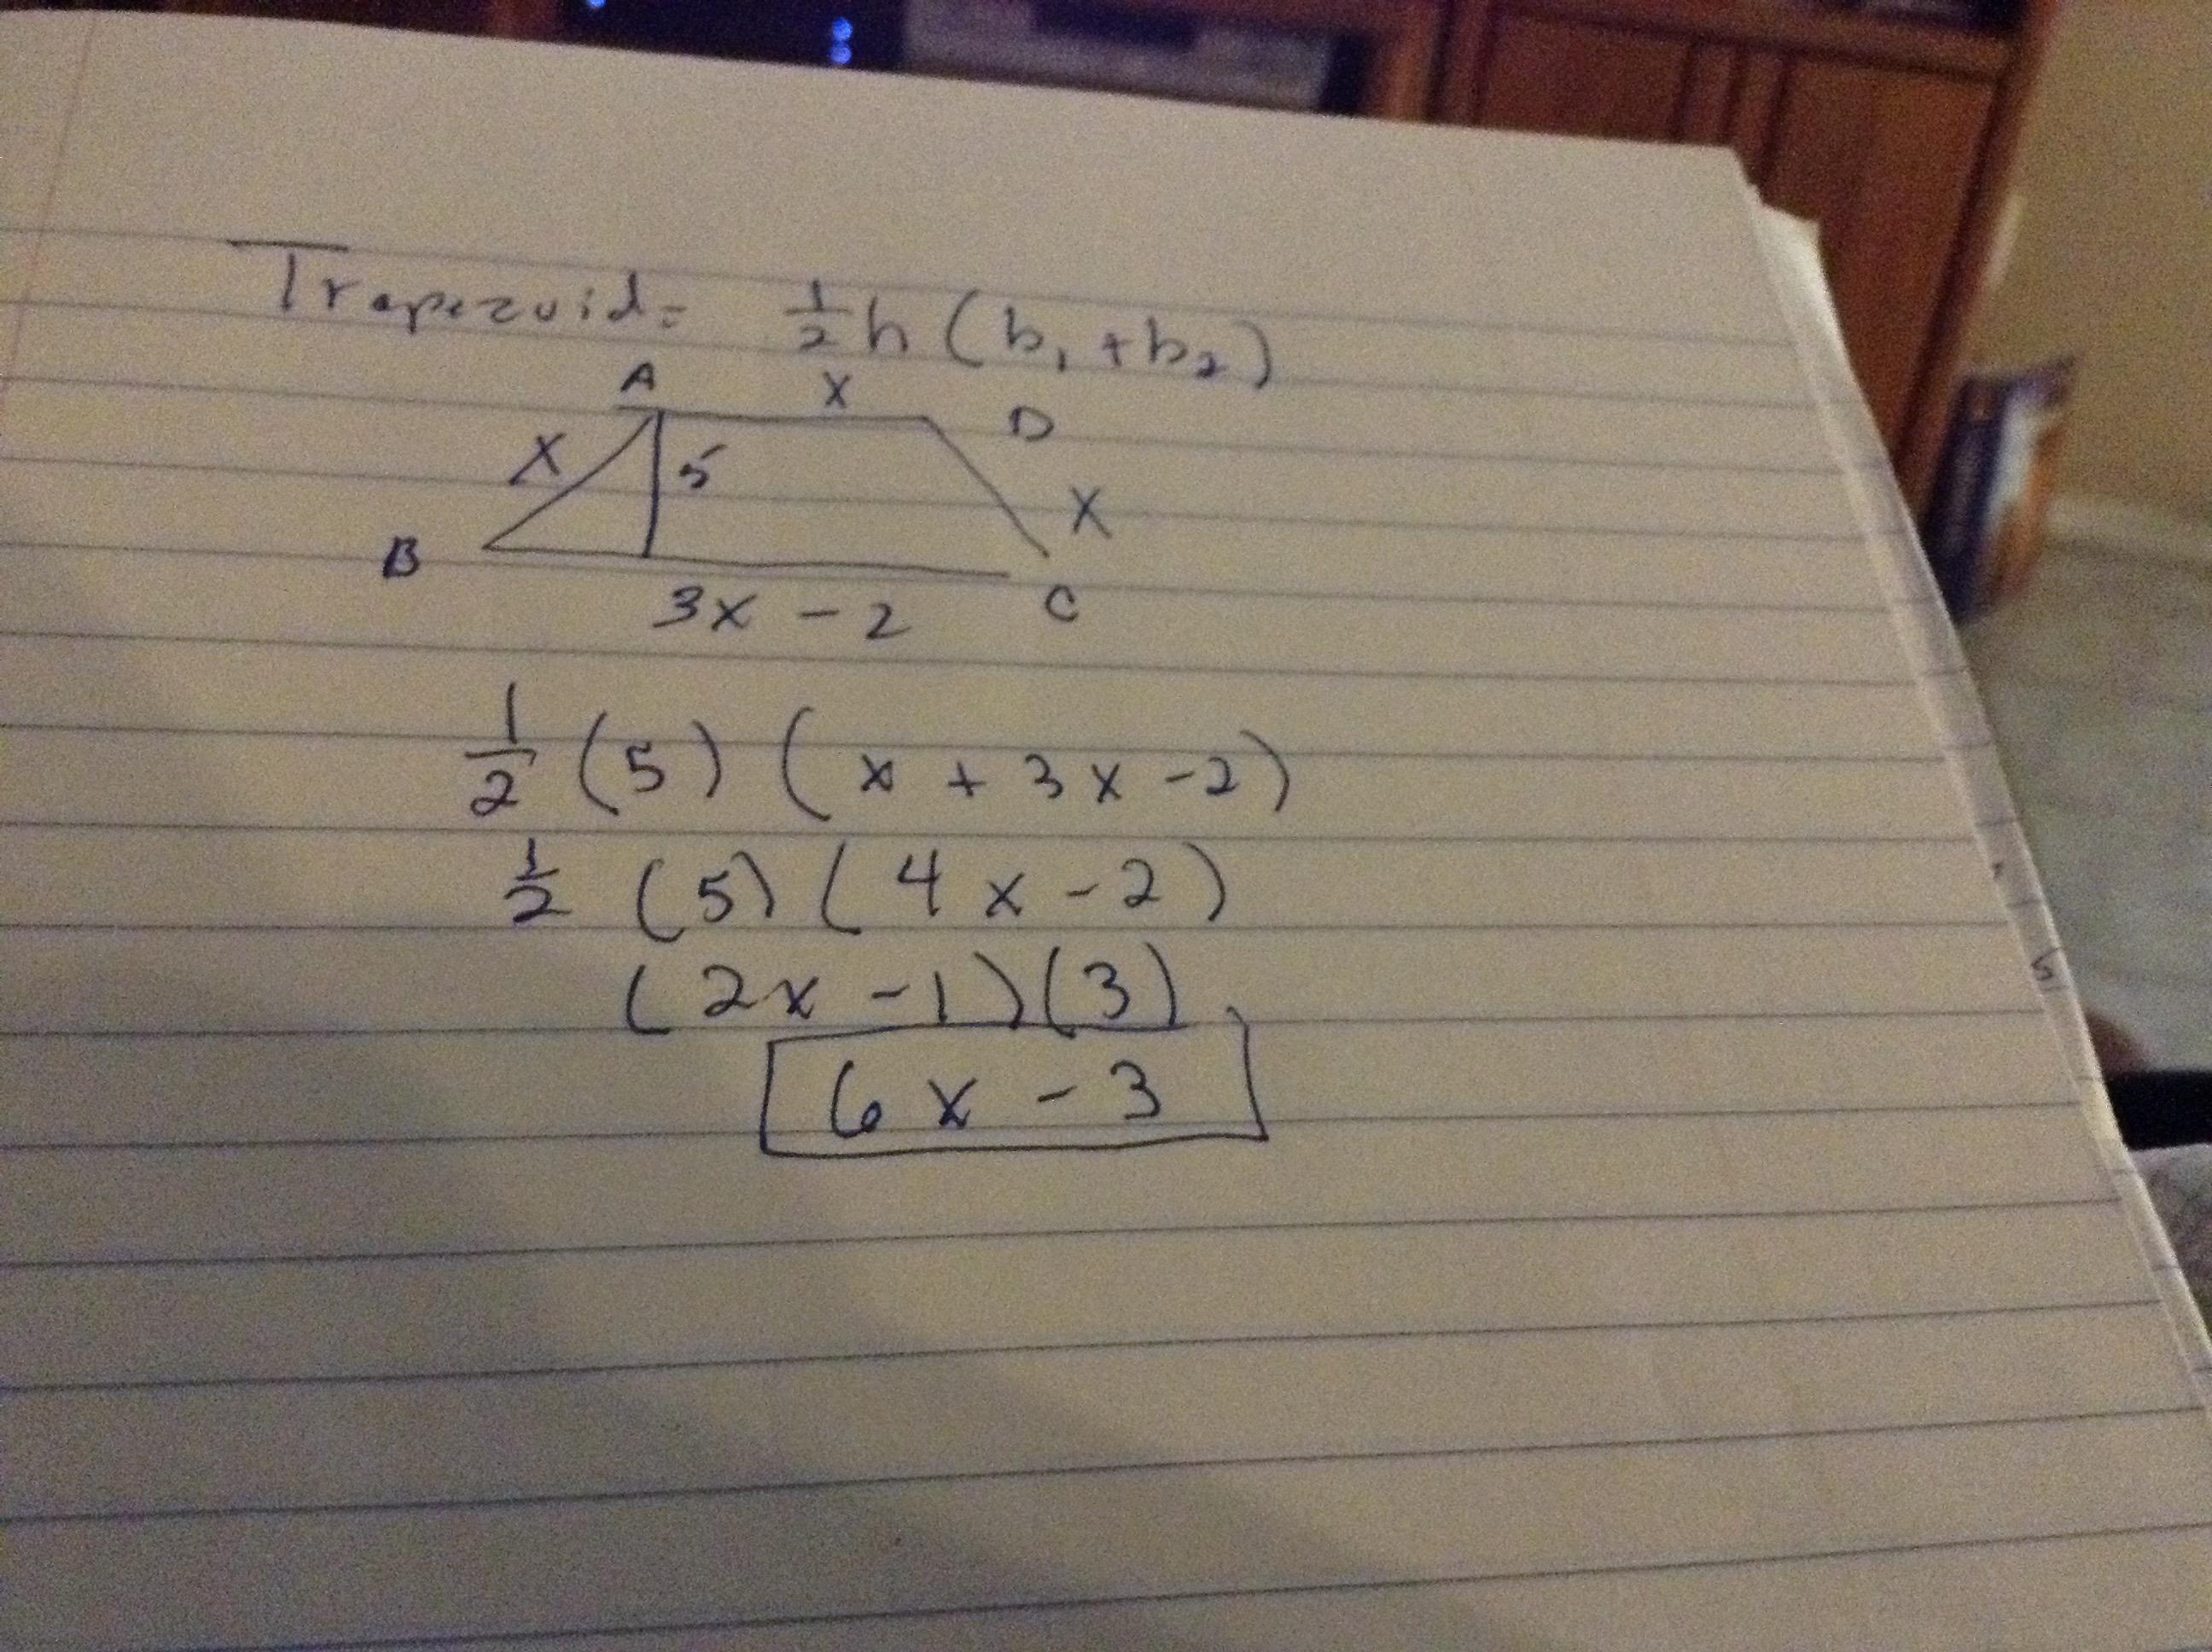 Trapezoid = 1/2 h (b₁ + b₂)
A x D
x 5 x
B 3x - 2 C
1/2 (5) (x + 3x - 2)
1/2 (5) (4x - 2)
(2x - 1)(3)
6x - 3